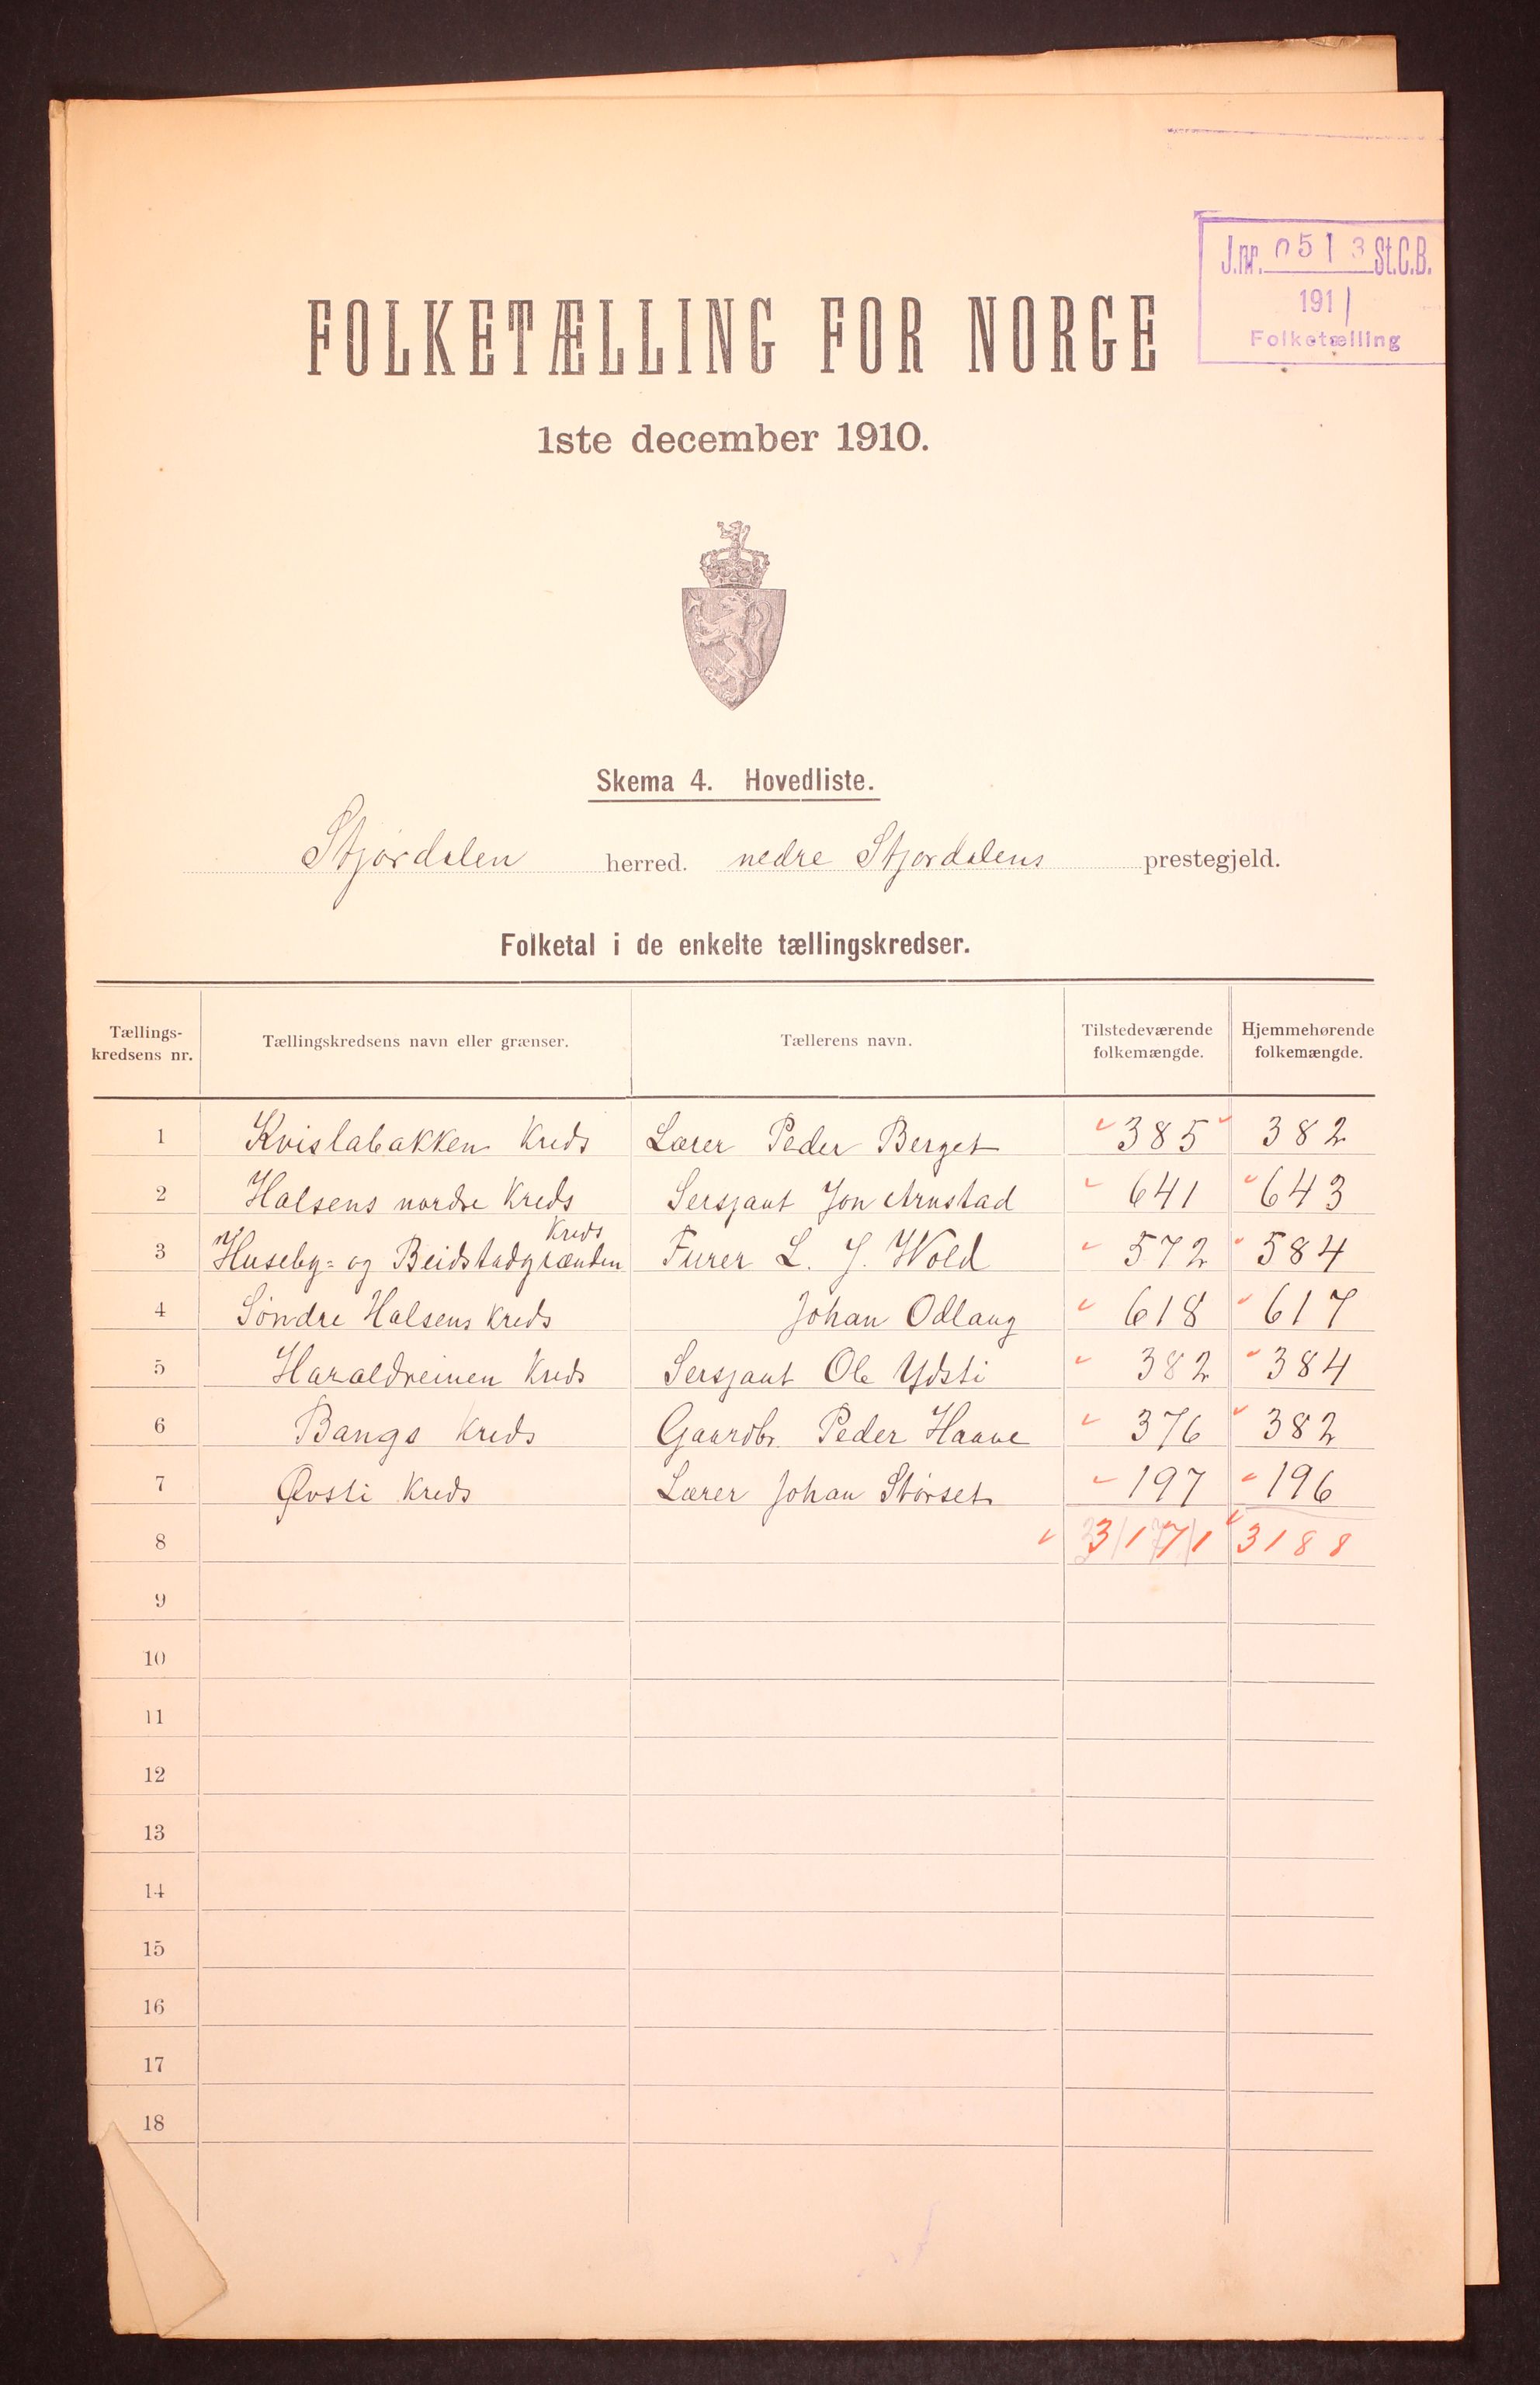 J.nr. 0513 St.C.B.
1911
Folketælling
FOLKETÆLLING FOR NORGE
1ste december 1910.
Skema 4. Hovedliste.
Stjørdalen herred. nedre Stjørdalens prestegjeld.
Folketal i de enkelte tællingskredser.
Tællings-kredsens nr. Tællingskredsens navn eller grænser. Tællerens navn. Tilstedeværende folkemængde. Hjemmehørende folkemængde.
1 Kvislabakken Kreds Lærer Peder Berget 385 382
2 Halsens nordre Kreds Sersjant Jon Arnstad 641 643
3 Huseby- og Beidstadgrænden Kreds Furer L. J. Wold 572 584
4 Søndre Halsens Kreds Johan Odlaug 618 617
5 Haraldreinen Kreds Sersjant Ole Ydsti 382 384
6 Bangs Kreds Gaardbr. Peder Haave 376 382
7 Øvsti Kreds Lærer Johan Størset 197 196
8 3171 3188
9
10
11
12
13
14
15
16
17
18